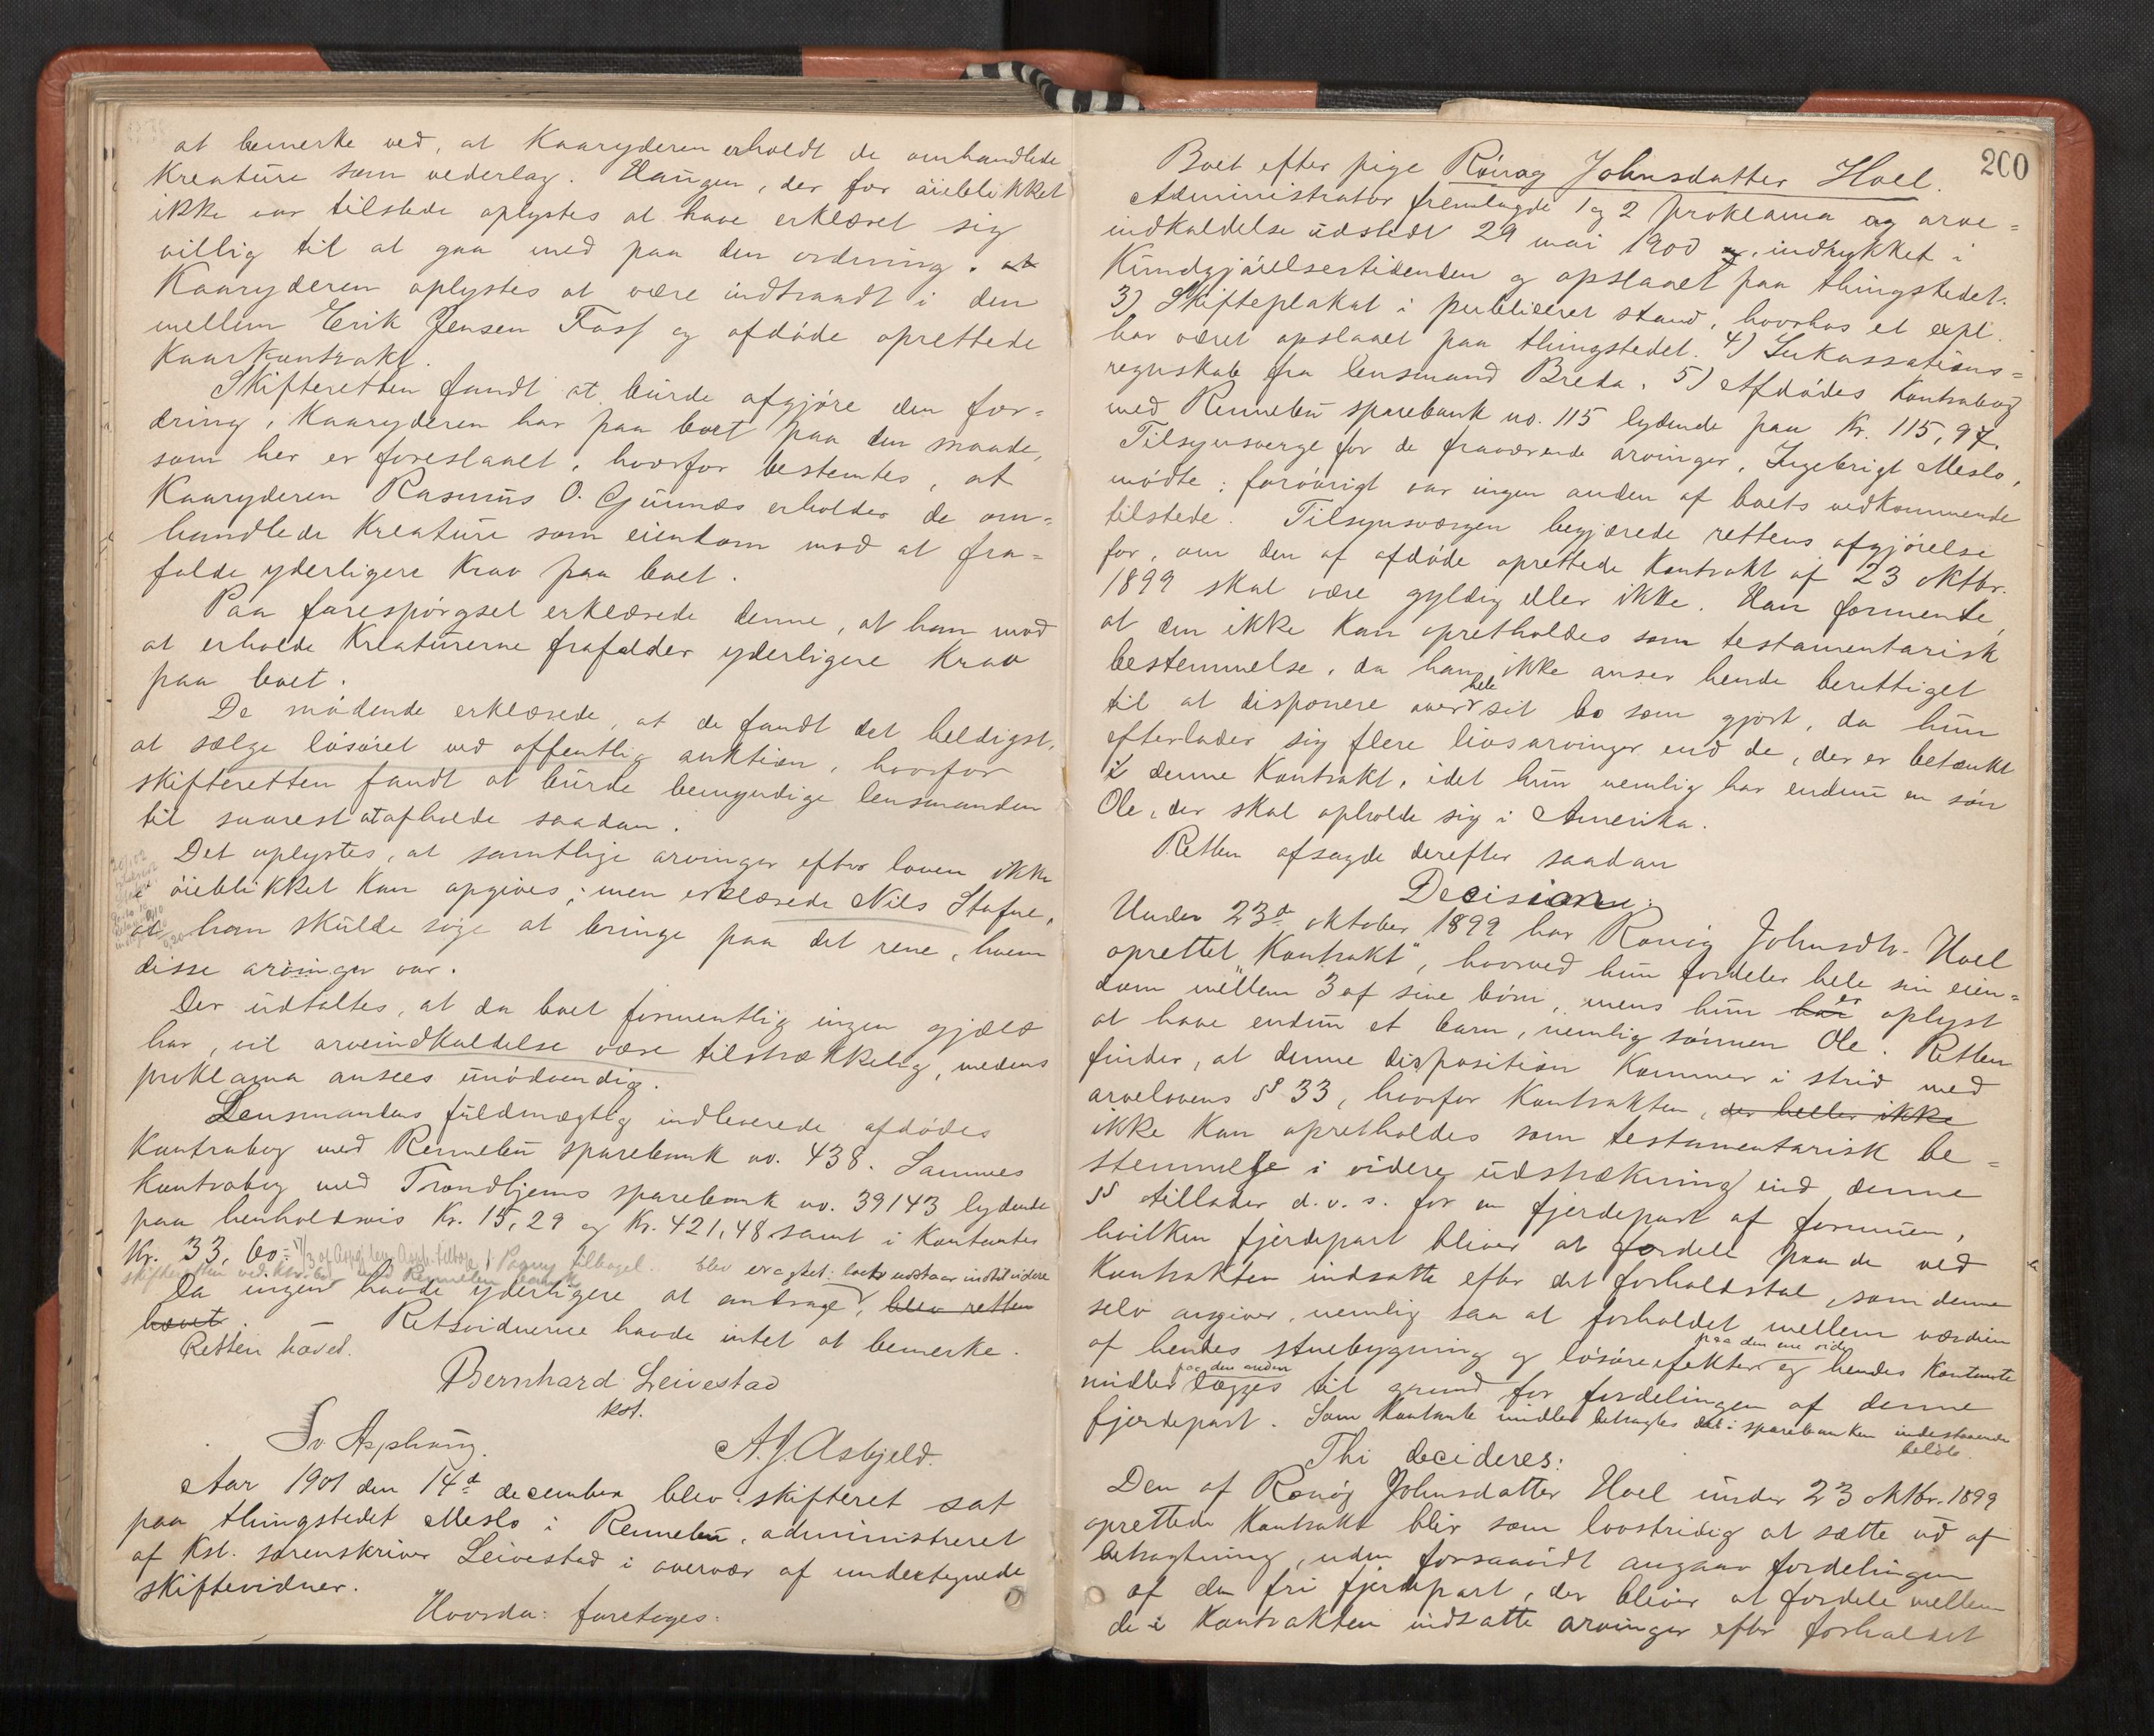 at bemerke ved, at Kaaryderen erholdt de omhandlede
Kreature som vederlag. Haugen, der for øieblikket
ikke var tilstede oplystes at have erklæret sig
villig til at gaa med paa den ordning.
Kaaryderen oplystes at være indtraadt i den
mellem Erik Jensen Foss og afdøde oprettede
Kaarkontrakt.
Skifteretten fandt at burde afgjøre den for=
dring, Kaaryderen har paa boet paa den maade,
som her er foreslaaet, hvorfor bestemtes, at
Kaaryderen Rasmus O. Gunnes erholder de om=
handlede Kreature som eiendom mod at fra=
falde yderligere Krav paa boet.
Paa forespørgsel erklærede denne, at han mod
at erholde Kreaturerne frafalder yderligere Krav
paa boet.
De mødende erklærede, at de fandt det heldigst,
at sælge løsøret ved offentlig auktion, hvorfor
skifteretten fandt at burde bemyndige lensmanden
til snarest at afholde saadan.
Det oplystes, at samtlige arvinger efter loven ikke
i øieblikket kan opgives; men erklærede Nils Stafne,
at han skulde søge at bringe paa det rene, hvem
disse arvinger var.
Der udtaltes, at da boet formentlig ingen gjæld
har, vil arveindkaldelse være tilstrækkelig, medens
proklama ansees unødvendig.
Lensmandens fuldmægtig indleverede afdødes
Kontrabog med Rennebu sparebank no. 438. Sammes
Kontrabog med Trondhjems sparebank no. 39143 lydende
paa henholdsvis Kr. 15,29 og Kr. 421,48 samt i Kontanter
Kr. 33,60.
blev eragtet: boet udstaar indtil videre
Da ingen havde yderligere at andrage, blev retten
hævet. — Retsvidnerne havde intet at bemerke.
Retten hævet.
Bernhard Leivestad
kst.
So. Asphaug. A. J. Asbjeld.
Aar 1901 den 14de december blev skifteret sat
paa thingstedet Meslo i Rennebu, administreret
af Kst. sorenskriver Leivestad i overvær af undertegnede
skiftevidner.
Hvorda: foretoges:
200
Boet efter pige Rønøg Johnsdatter Hoel.
Administrator fremlagde 1 og 2 proklama og arve=
indkaldelse udstedt 29 mai 1900 indrykket i
Kundgjørelsestidenden og opslaaet paa thingstedet.
3) Skifteplakat i publiceret stand, hvorhos et expl.
har været opslaaet paa thingstedet. 4) Inkassations=
regnskab fra lensmand Breda. 5) Afdødes Kontrabog
med Rennebu sparebank no. 115 lydende paa Kr. 115,97.
Tilsynsverge for de fraværende arvinger, Ingebrigt Meslo,
mødte; forøvrigt var ingen anden af boets vedkommende
tilstede. Tilsynsvergen begjærede rettens afgjørelse
for, om den af afdøde oprettede Kontrakt af 23 oktbr.
1899 skal være gyldig eller ikke. Han formente,
at den ikke kan opretholdes som testamentarisk
bestemmelse, da han ikke anser hende berettiget
til at disponere over hele sit bo som gjort, da hun
efterlader sig flere livsarvinger end de, der er betænkt
i denne Kontrakt, idet hun nemlig har endnu en søn
Ole, der skal opholde sig i Amerika.
Retten afsagde derefter saadan
Decision:
Under 23de oktober 1899 har Rønøg Johnsdtr. Hoel
oprettet "Kontrakt", hvorved hun fordeler hele sin eien=
dom mellem 3 af sine børn, mens hun har er oplyst
at have endnu et barn, nemlig sønnen Ole. Retten
finder, at denne disposition kommer i strid med
arvelovens § 33, hvorfor Kontrakten, der heller ikke
ikke kan opretholdes som testamentarisk be=
stemmelse i videre udstrækning end denne
§ tillader d.v.s. for en fjerdepart af formuen,
hvilken fjerdepart bliver at fordele paa de ved
Kontrakten indsatte efter det forholdstal, som denne
selv angiver, nemlig saa at forholdet mellem værdien
af hendes stuebygning og løsøreefekter paa den ene side og hendes Kontante
midler paa den anden lægges til grund for fordelingen af denne
fjerdepart. Som Kontante midler betragtes det i sparebanken indestaaende
beløb.
Thi decideres:
Den af Rønøg Johnsdatter Hoel under 23 oktbr. 1899
oprettede Kontrakt blir som lovstridig at sætte ud af
betragtning, uden forsaavidt angaar fordelingen
af den fri fjerdepart, der bliver at fordele mellem
de i Kontrakten indsatte arvinger efter forholdet